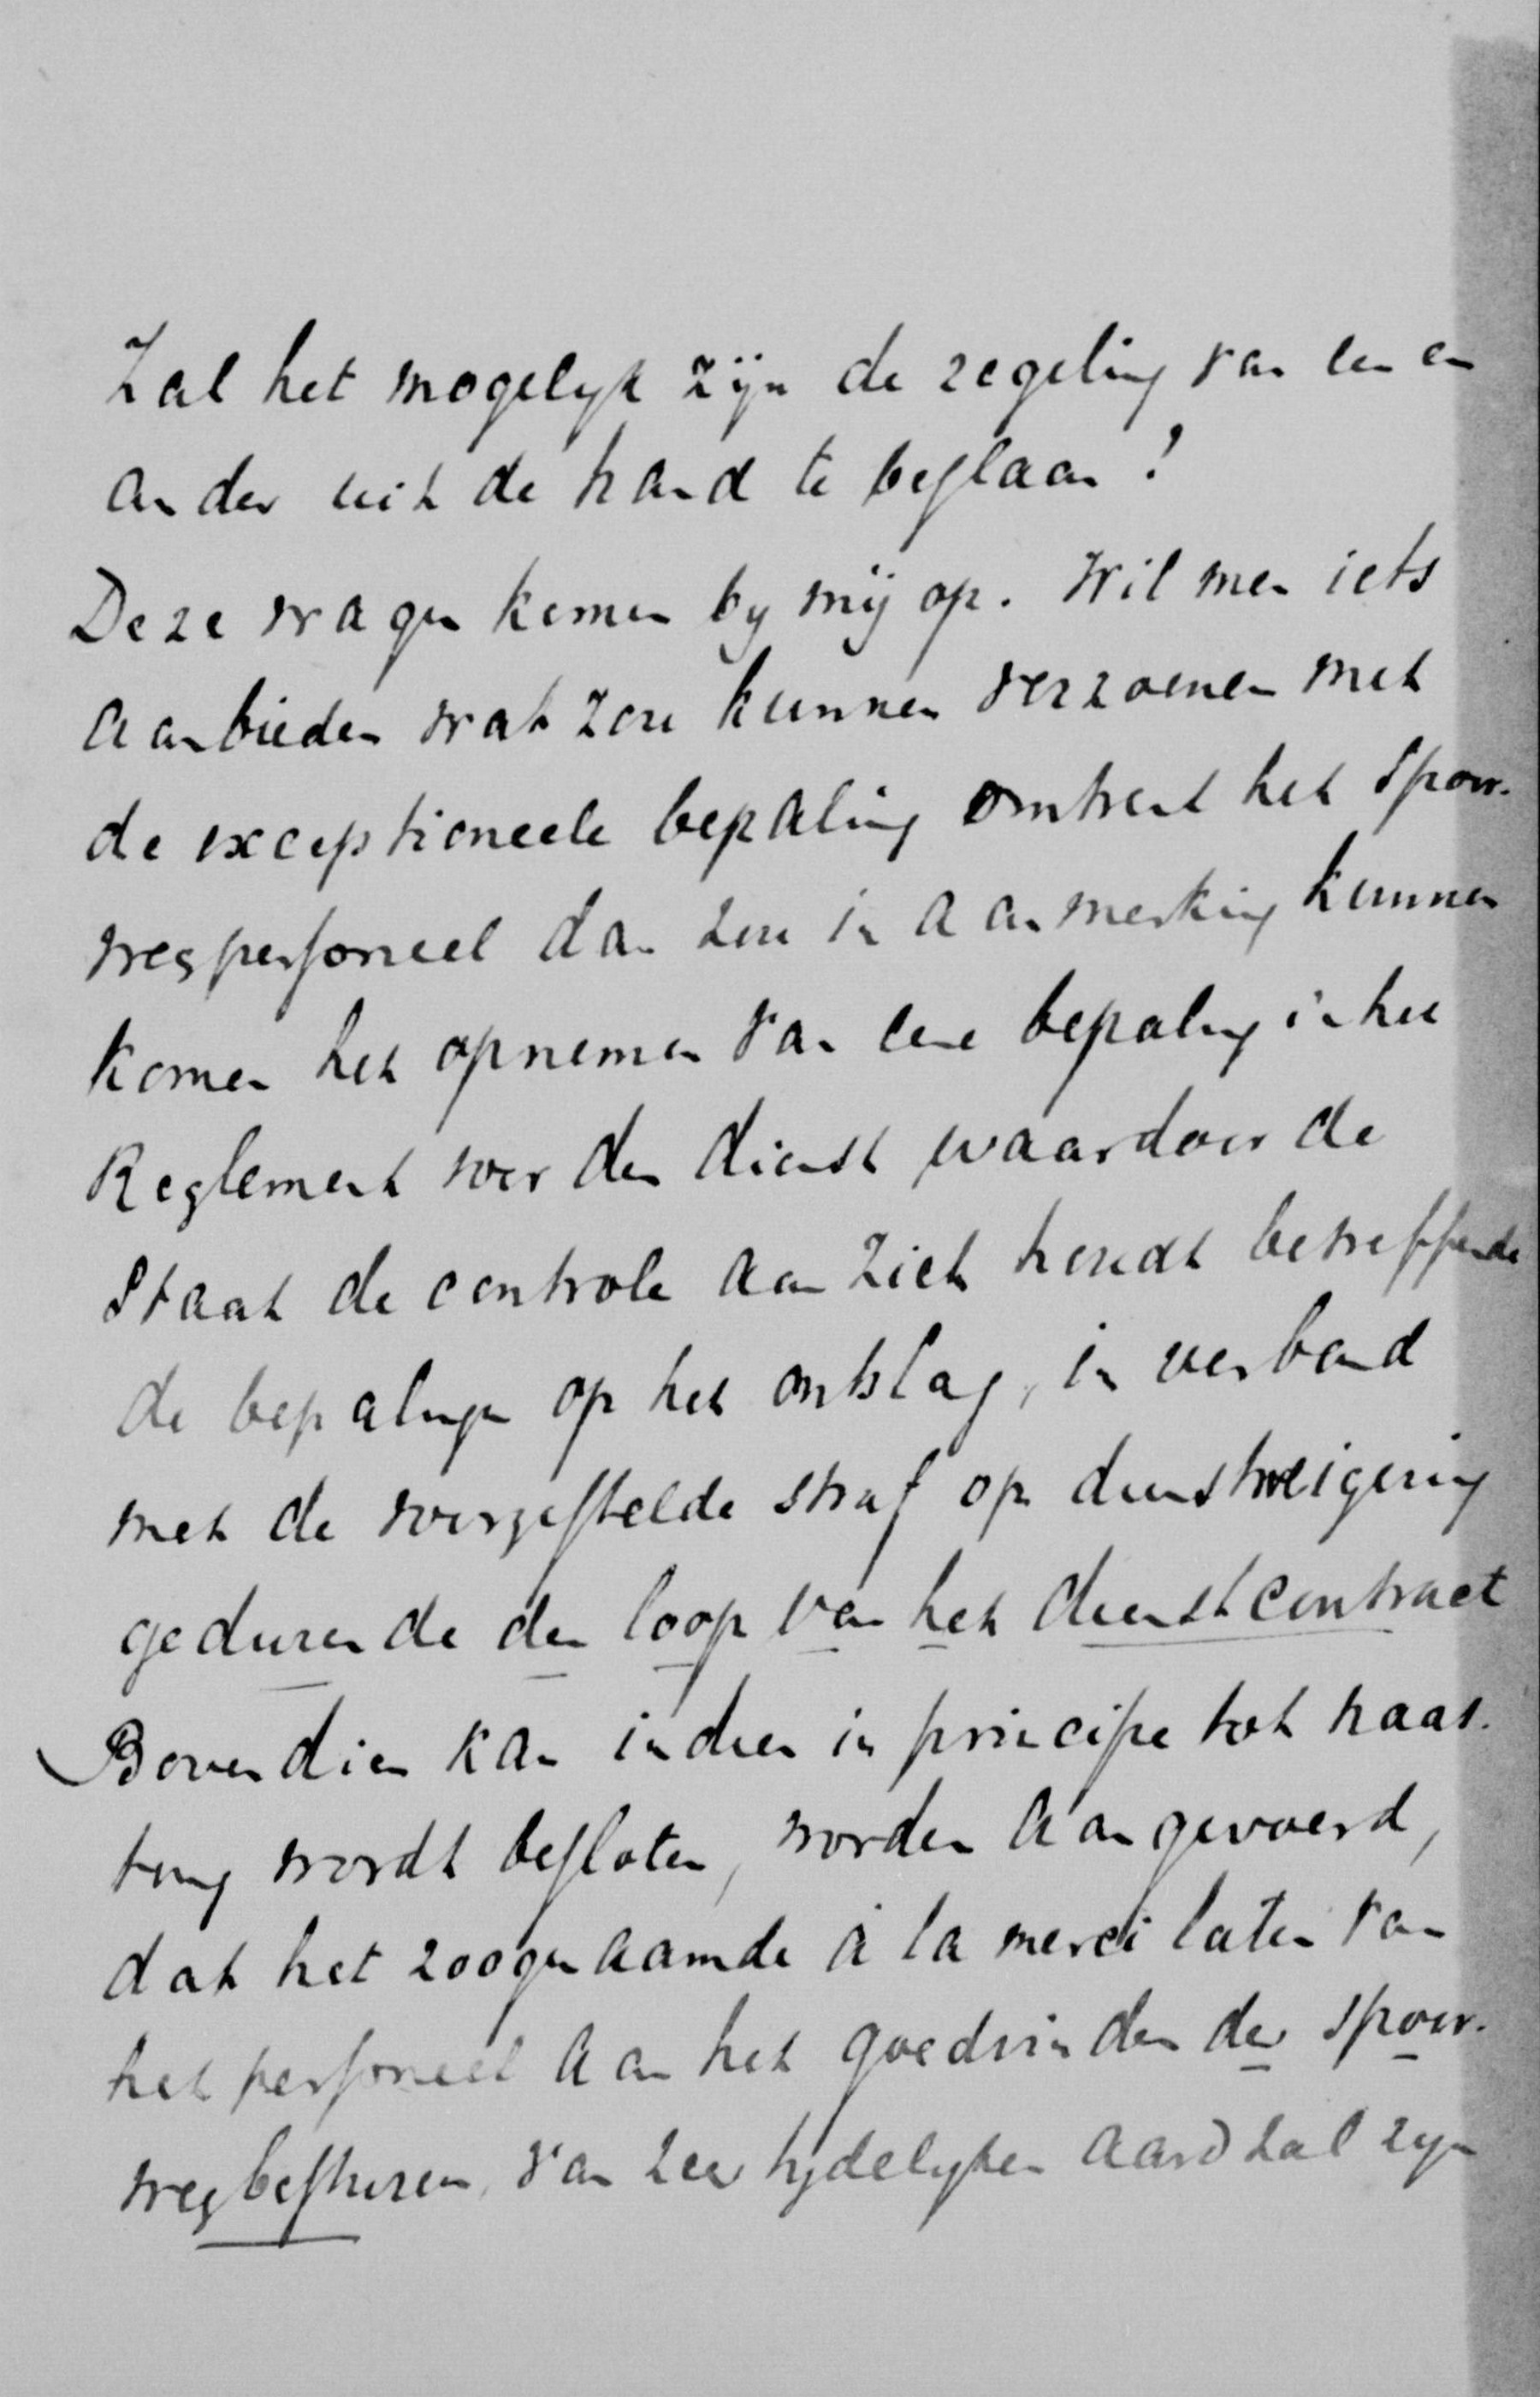 Zal het mogelyk zijn de regeling van een en
ander uit de hand te beslaan?
Deze vragen komen by mij op. Wil men iets
aanbieden wat zou kunnen verzoenen met
de exceptioneele bepaling omtrent het spoor-
wegpersoneel dan zou in aanmerking kunnen
komen het opnemen van eene bepaling in het
Reglement voor den dienst waardoor de
Staat de controle aan zich houdt betreffende
de bepalingen op het ontslag, in verband
met de voorgestelde straf op dienstweigering
gedurende den loop van het dienstcontract
Bovendien kan indien in principe tot naas-
ting wordt besloten, worden aangevoerd,
dat het zoogenaamde à la merci laten van
het personeel aan het goedvinden der spoor-
wegbesturen, van zeer tydelyken aard zal zyn